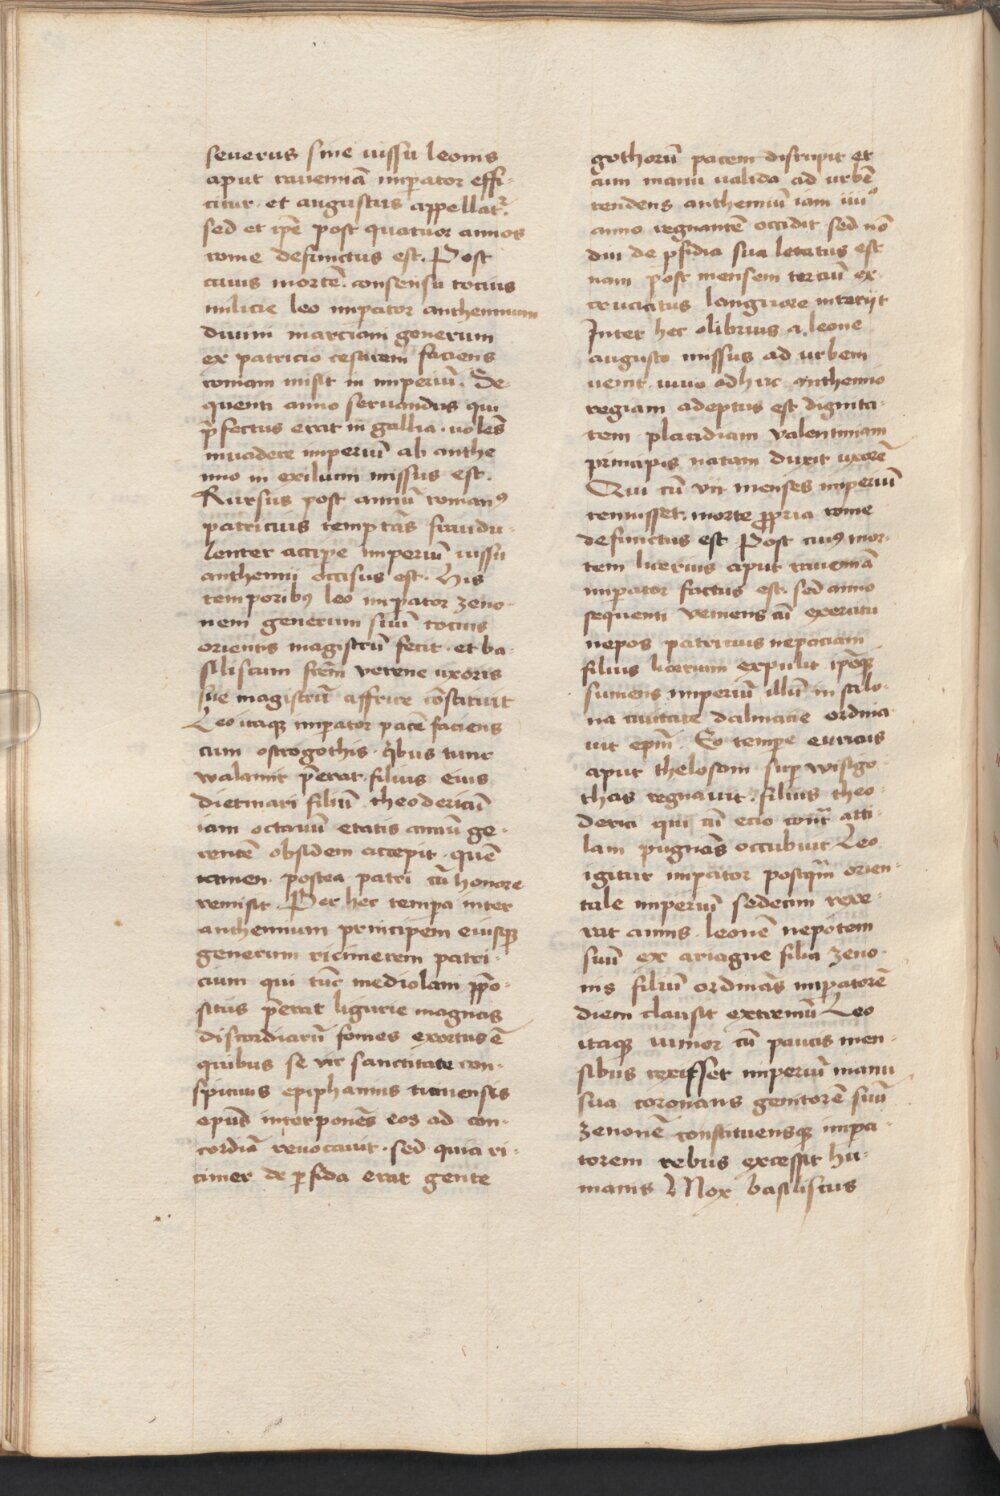 seuerus sine iussu leonis
aput rauennā imꝑator effi-
citur · et augustus appellatꝛ̄.
sed et ip̄e post quatuor annos
rome defunctus est. Post
cuius mortē. consensu tocius
milicie leo impator anthemium
diuini marciani generum
ex patricio cesarem faciens
romam misit in imperiū. Se-
quenti anno seruandus qui
p̄fectus erat in gallia · uolēs
inuadere imperiū ab anthe
mio in exilium missus est.
Rursus post annū romanꝰ
patricius temptās fraudu-
lenter accipe imperiū iussu
anthemii occisus est. His
temporibꝰ leo impator zeno-
nem generum suū tocius
orientis magistrū fecit · et ba-
siliscum frēm verene uxoris
sue magistrū affrice cōstituit
Leo itaqꝫ imperator pacē faciens
cum ostrogothis · q̄bus tunc
walamir p̄erat · filius eius
dietmari filiū theodericū
iam octauū etatis annū ge-
rentē obsidem accepit · quē
tamen postea patri cū honore
remisit. Per hec tempa inter
anthemium principem eiusqꝫ
generum ricimerem patri-
cium qui tūc mediolani p̄po-
situs p̄erat ligurie magnus
discordiarū fomes exortus ē
quibus se vir sanctitate con-
spicuus epiphanius ticinensis
ep̄us interponēs eos ad con-
cordiā reuocauit · sed quia ri-
cimer de ꝑfida erat gente
gothorū pacem disrupit et
cum manu ualida ad urbē
tendens anthemiū iam iiiiº
anno regnantē occidit sed nō
diu de ꝑfidia sua letatus est
nam post mensem terciū ex-
cruciatus languore interiit
Inter hec olibrius a leone
augusto missus ad urbem
uenit. uiuo adhuc anthemio
regiam adeptus est dignita-
tem placidiam valentiniani
principis natam duxit uxorē
Qui cū vii menses imperiū
tenuisset. morte ꝓpria rome
defunctus est Post cuiꝰ mor-
tem licerius aput rauennā
imperator factus est. sed anno
sequenti veniens cū exercitu
nepos patricius nepociani
filius licerium expulit ip̄eqꝫ
sumens imperiū illū in salo-
na ciuitate dalmacie ordina
uit ep̄m. Eo tempe euricus
aput tholosam suꝑ wisigo-
thas regnauit · filius theo-
derici qui cū ecio contᷓ atti-
lam pugnās occubuit Leo
igitur impator postqᷓm orien-
tale imperiū sedecim rexe-
rat annis · leonē nepotem
suū ex ariagne filia zeno-
nis filiū ordinās imꝑatorē
diem clausit extremū Leo
itaqꝫ iunior cū paucis men-
sibus rexisset imperiū manu
sua coronans genitorē suū
zenonē constituensqꝫ impa-
torem rebus excessit hu-
manis Mox basiliscus